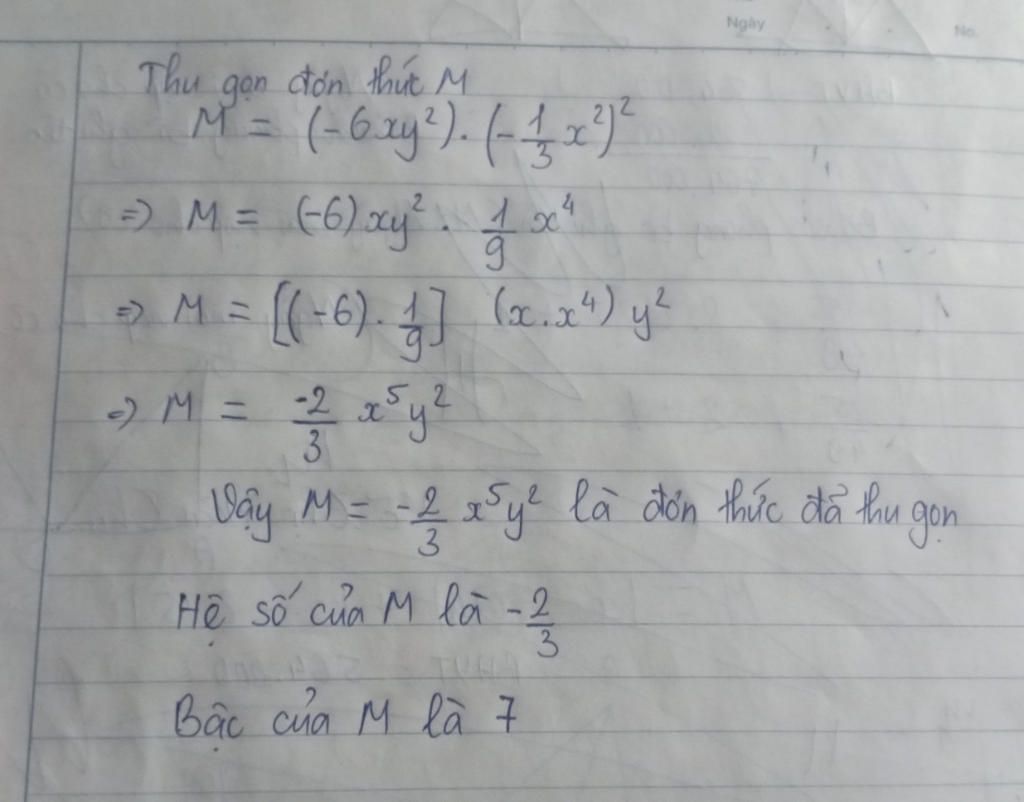 Ngày
No.
Thu gọn đơn thức M
M = (-6xy²).(-1/3 x²)²
=> M = (-6)xy² . 1/9 x⁴
=> M = [(-6).1/9] (x.x⁴) y²
=> M = -2/3 x⁵y²
Vậy M = -2/3 x⁵y² là đơn thức đã thu gọn
Hệ số của M là -2/3
Bậc của M là 7